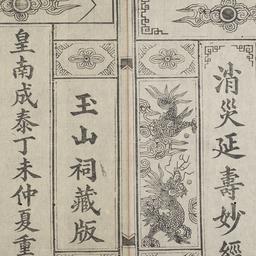 消災延壽妙經
玉山祠藏版
皇南成泰丁未仲夏重